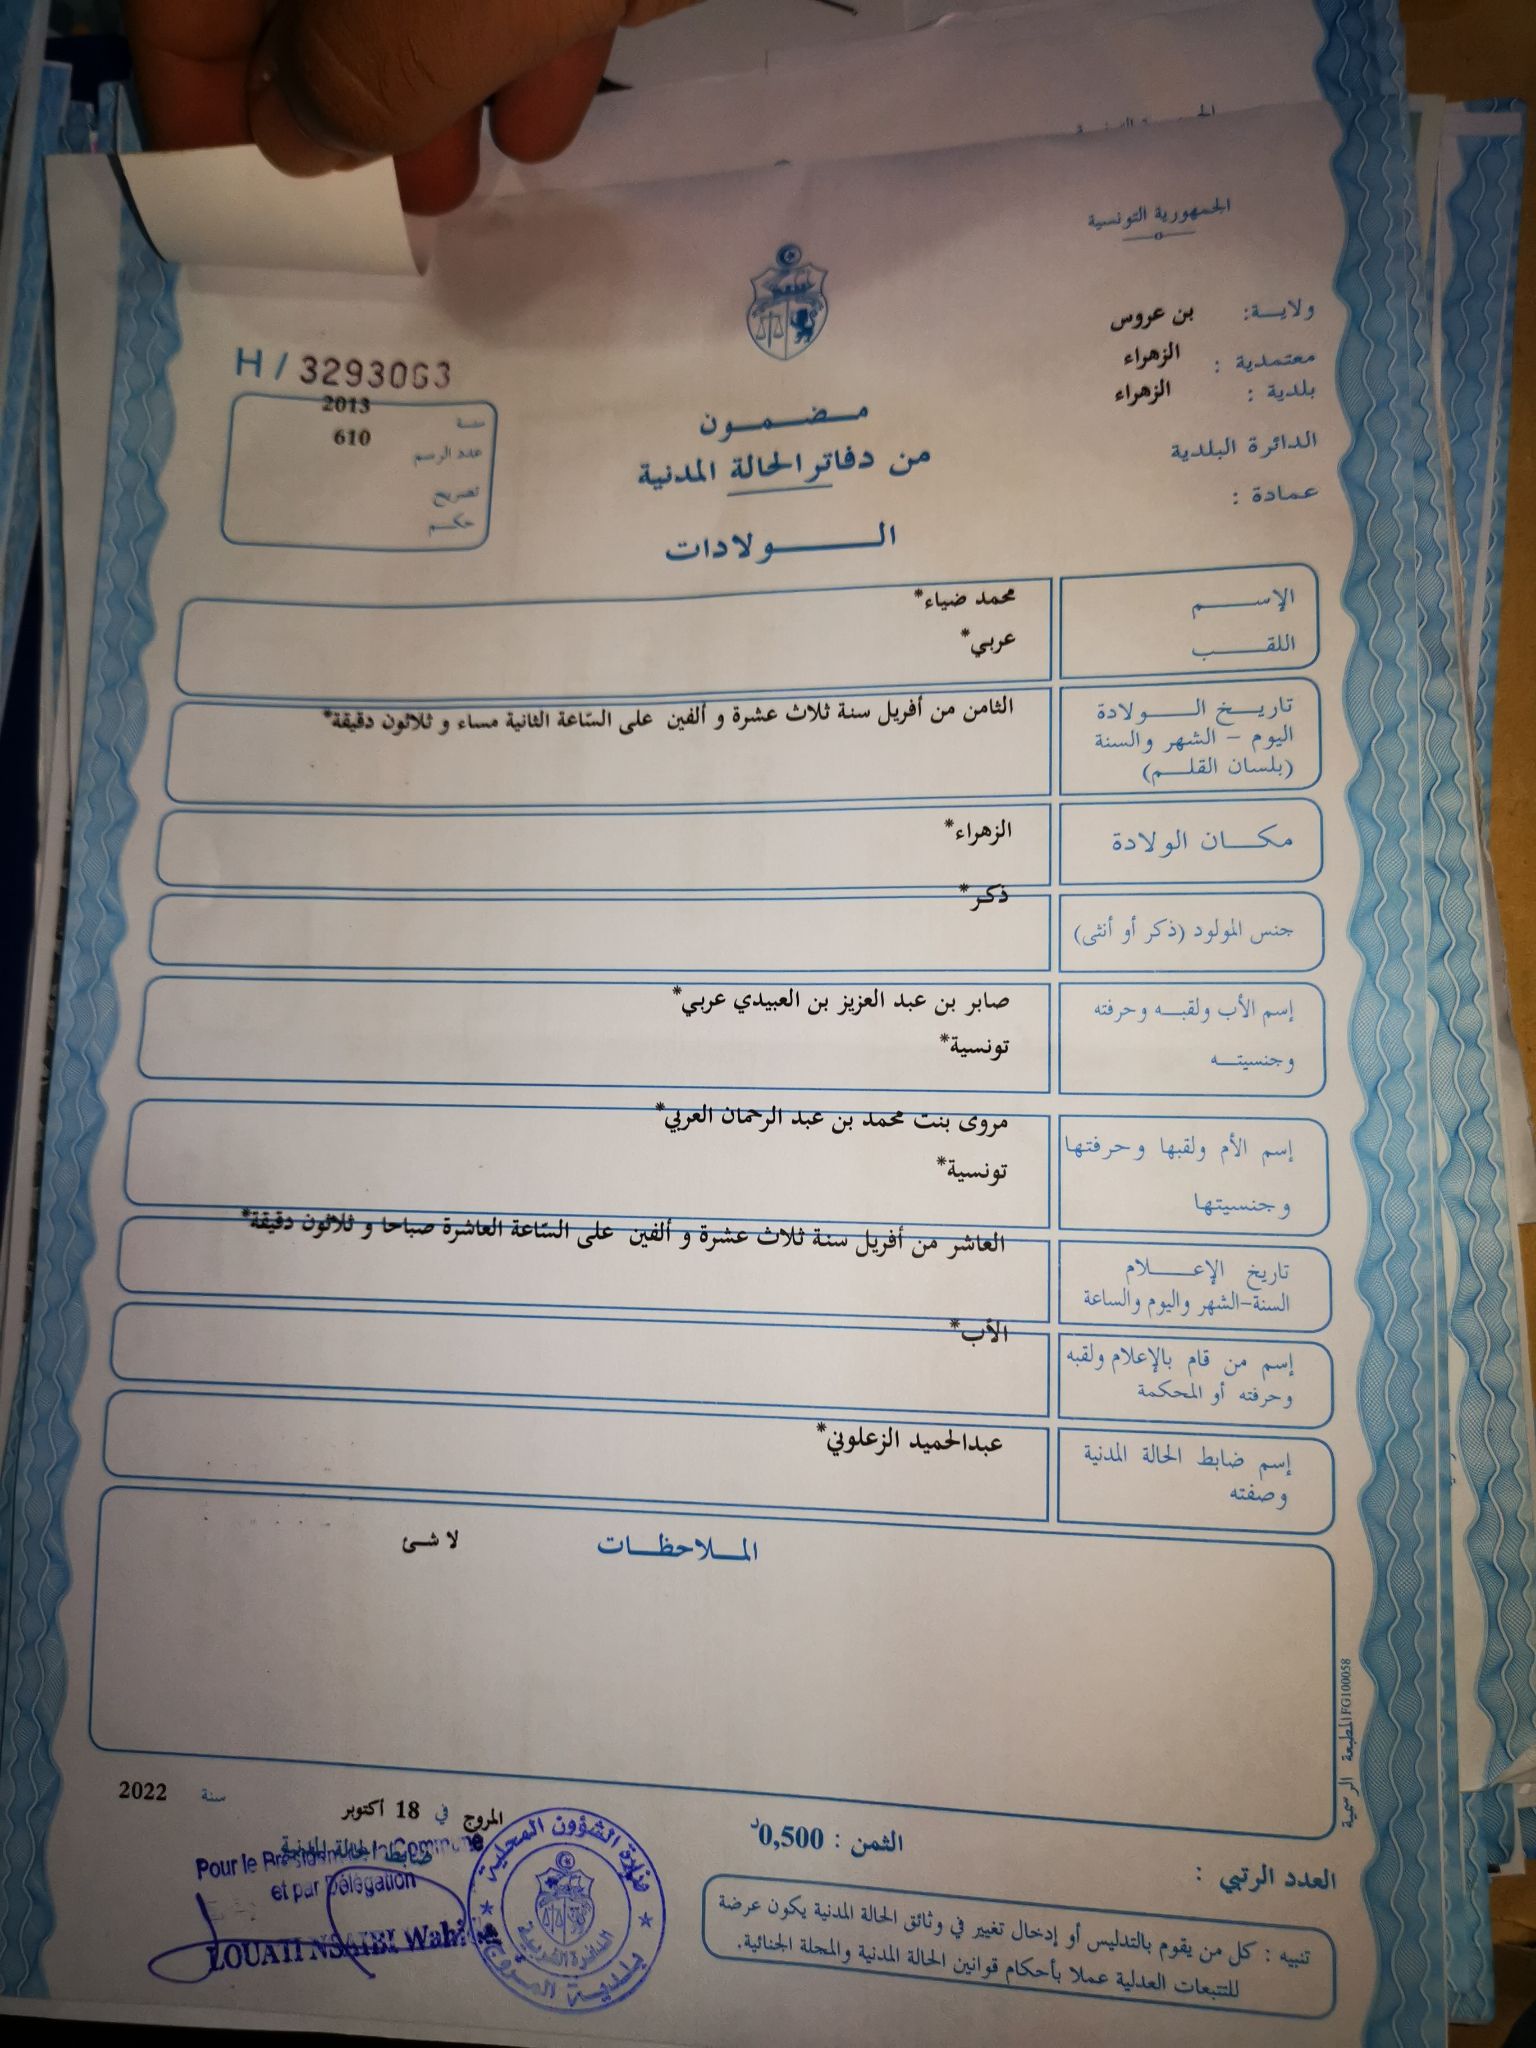 الجمهورية التونسية
ولايـــة: بن عروس
معتمدية : الزهراء
بلدية : الزهراء
الدائرة البلدية
عمادة :
H / 3293063
سنة 2013
عدد الرسم 610
تصريح
حكـم
مـضـمـون
من دفاتر الحالة المدنية
الـولادات
الإســم محمد ضياء*
اللقـب عربي*
تاريـخ الـولادة
اليوم - الشهر والسنة
(بلسان القلـم)
الثامن من أفريل سنة ثلاث عشرة و ألفين على السّاعة الثانية مساء و ثلاثون دقيقة*
مكـان الولادة الزهراء*
جنس المولود (ذكر أو أنثى) ذكر*
إسم الأب ولقبـه وحرفته صابر بن عبد العزيز بن العبيدي عربي*
وجنسيتـه تونسية*
إسم الأم ولقبها وحرفتها مروى بنت محمد بن عبد الرحمان العربي*
وجنسيتها تونسية*
تاريخ الإعـلام
السنة-الشهر واليوم والساعة
العاشر من أفريل سنة ثلاث عشرة و ألفين على السّاعة العاشرة صباحا و ثلاثون دقيقة*
إسم من قام بالإعلام ولقبه
وحرفته أو المحكمة
الأب*
إسم ضابط الحالة المدنية
وصفته
عبدالحميد الزعلوني*
المـلاحظـات لا شئ
المطبعة الرسمية FG100058
المروج في 18 أكتوبر سنة 2022
ضابط الحالة المدنية
Pour le Président de la Commune
et par Délégation
LOUATI NSAIBI
وزارة الشؤون المحلية
بلدية المروج
الثمن : 0,500د
العدد الرتبي :
تنبيه : كل من يقوم بالتدليس أو إدخال تغيير في وثائق الحالة المدنية يكون عرضة
للتتبعات العدلية عملا بأحكام قوانين الحالة المدنية والمجلة الجنائية.